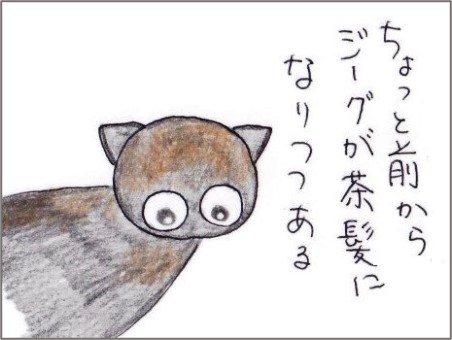 ちょっと前から
ジーグが茶髪に
なりつつある